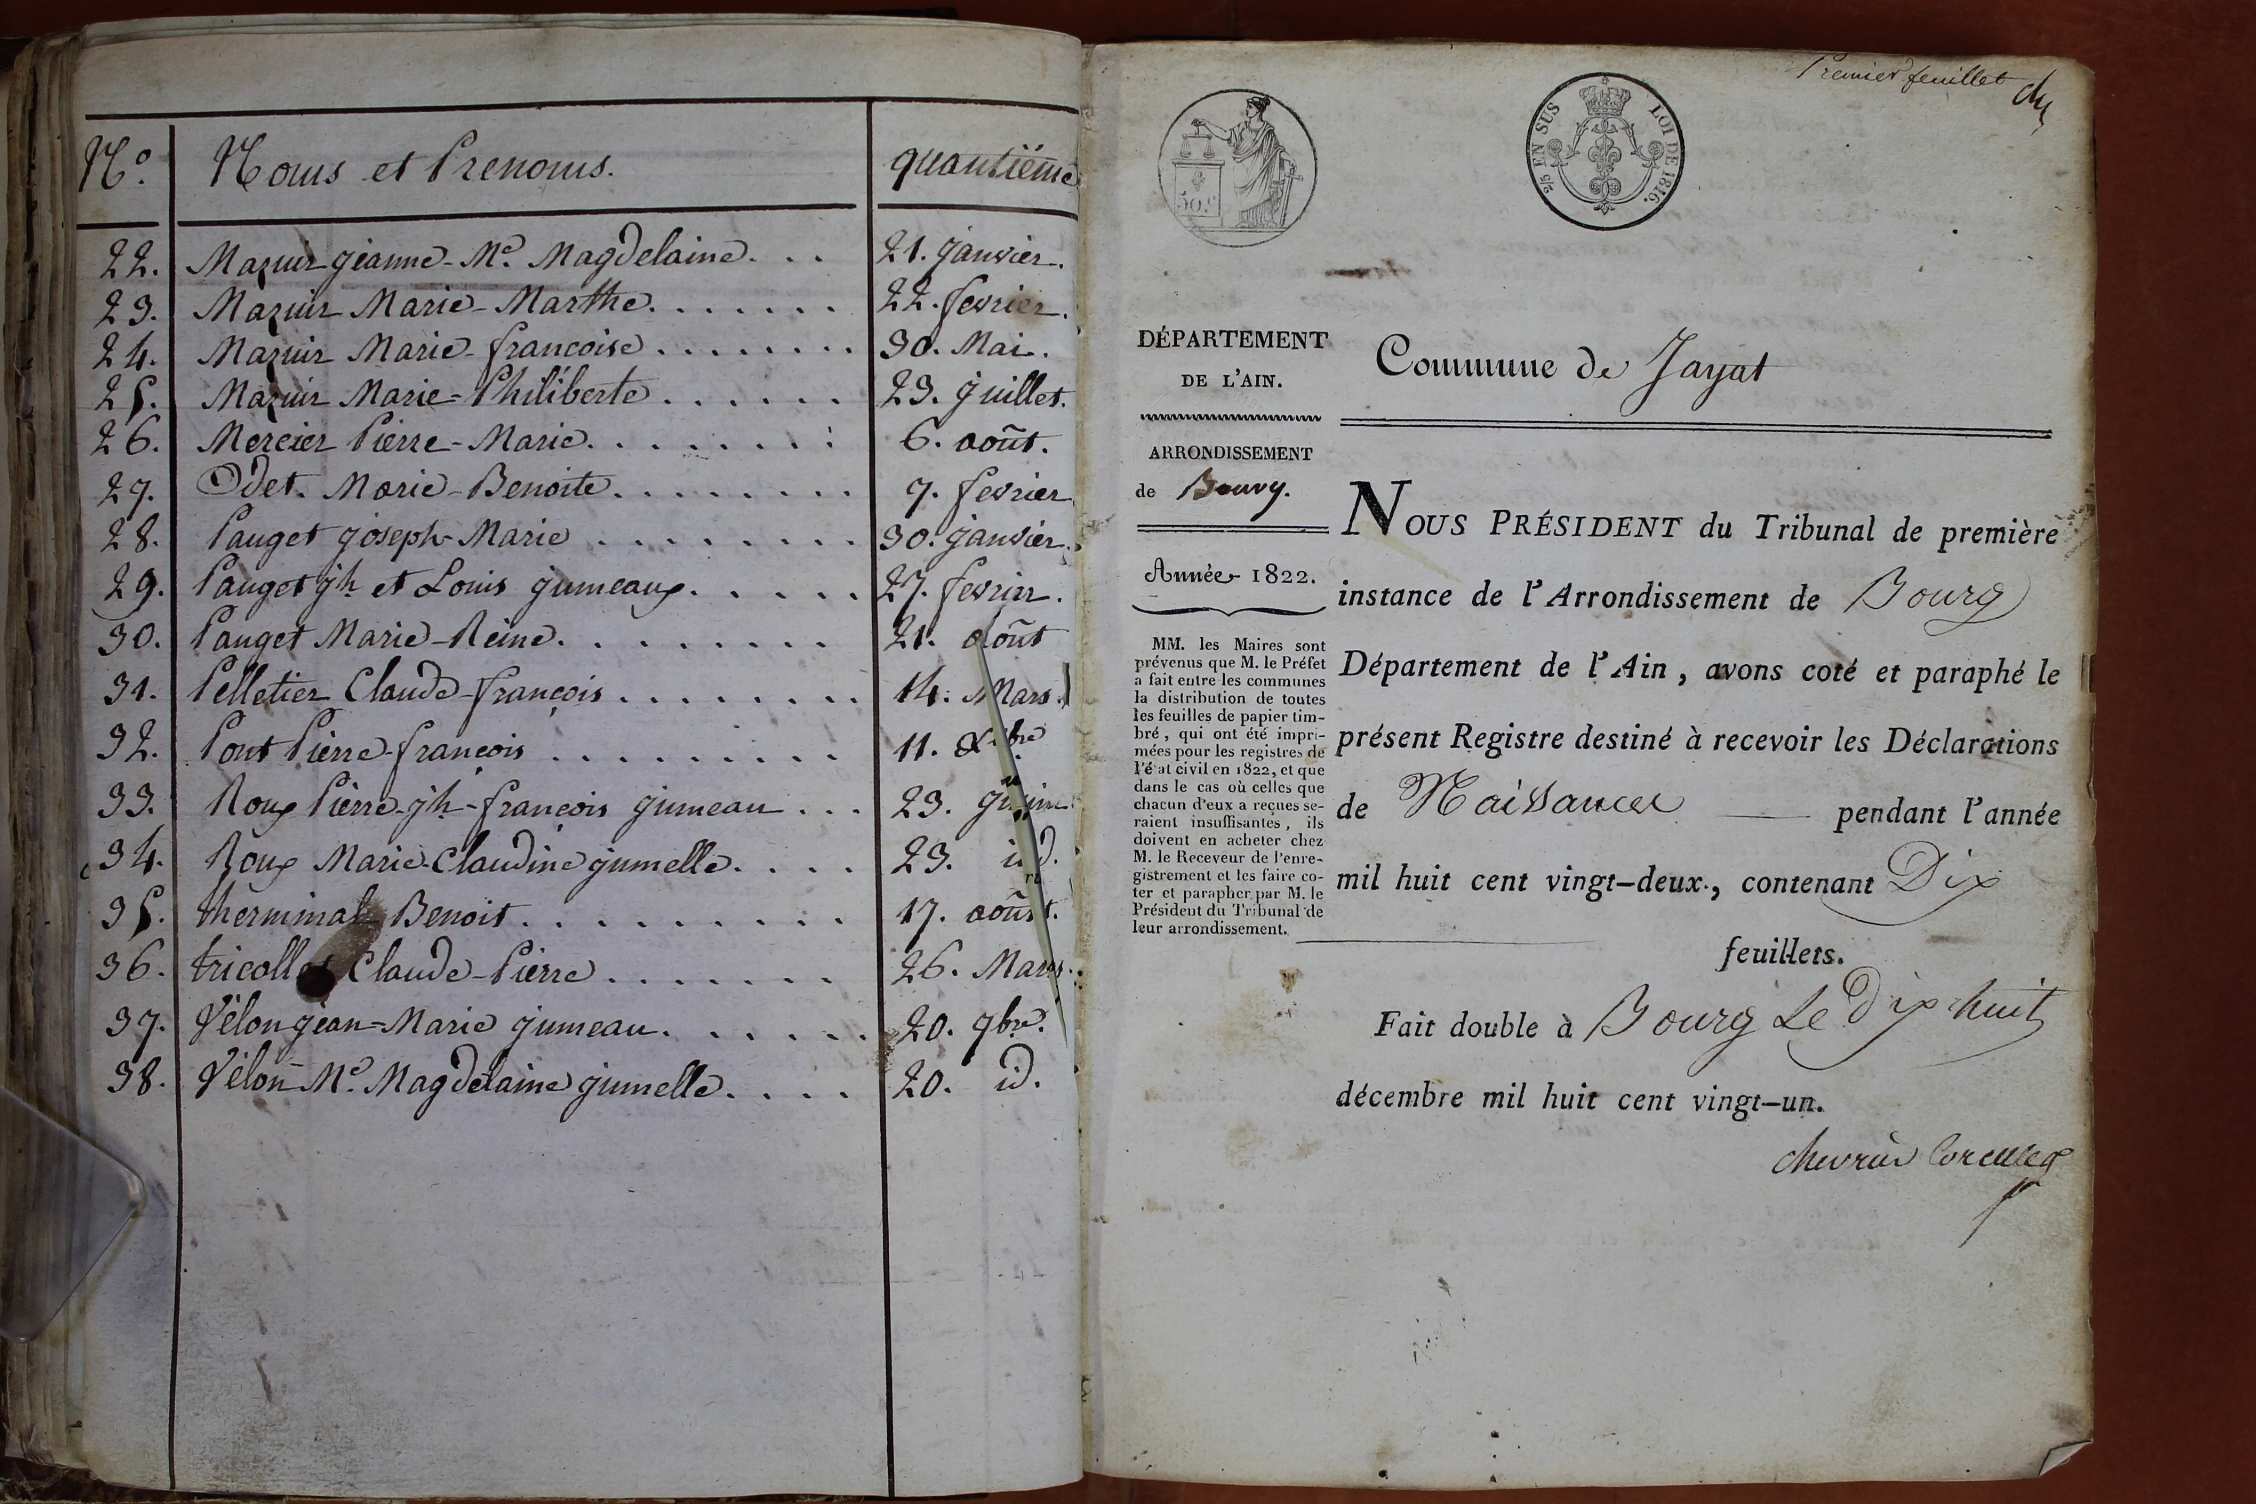 N.º Noms et Prenoms. quantième
22. Mazuir jeanne-M.e Magdelaine. . . 21. janvier.
23. Mazuir Marie-Marthe. . . . . . . 22. fevrier.
24. Mazuir Marie-françoise . . . . . . . . 30. Mai.
25. Mazuir Marie-Philiberte . . . . . . 23. juillet.
26. Mercier Pierre-Marie. . . . . . . : 6. août.
27. Odet. Marie-Benoite. . . . . . . . 7. fevrier
28. Pauget joseph-Marie . . . . . . . . . 30. janvier.
29. Pauget jh. et Louis jumeaux. . . . . . 27. fevrier.
30. Pauget Marie-Reine. . . . . . . . . 21. août
31. Pelletier Claude-françois . . . . . . . . 14. Mars.
32. Pont Pierre-françois . . . . . . . . . 11. Xbre
33. Roux Pierre-jh.-françois jumeau . . . 23.
34. Roux Marie-Claudine jumelle. . . . 23. id.
35. therminal Benoit. . . . . . . . . . 17. août.
36. tricollet Claude-Pierre . . . . . . . 26. Mars.
37. Vélon jean=Marie jumeau. . . . . . 20. 9bre.
38. Vélon-M.e Magdelaine jumelle. . . . 20. id.
Premier feuillet
50.c
2/5 EN SUS LOI DE 1816.
DÉPARTEMENT
DE L'AIN.
Commune de Jayat
ARRONDISSEMENT
de Bourg.
Année 1822.
MM. les Maires sont
prévenus que M. le Préfet
a fait entre les communes
la distribution de toutes
les feuilles de papier tim-
bré, qui ont été impri-
mées pour les registres de
l'état civil en 1822, et que
dans le cas où celles que
chacun d'eux a reçues se-
raient insuffisantes, ils
doivent en acheter chez
M. le Receveur de l'enre-
gistrement et les faire co-
ter et parapher par M. le
Président du Tribunal de
leur arrondissement.
NOUS PRÉSIDENT du Tribunal de première
instance de l'Arrondissement de Bourg
Département de l'Ain, avons coté et paraphé le
présent Registre destiné à recevoir les Déclarations
de Naissances pendant l'année
mil huit cent vingt-deux., contenant Dix
feuillets.
Fait double à Bourg Le Dix huit
décembre mil huit cent vingt-un.